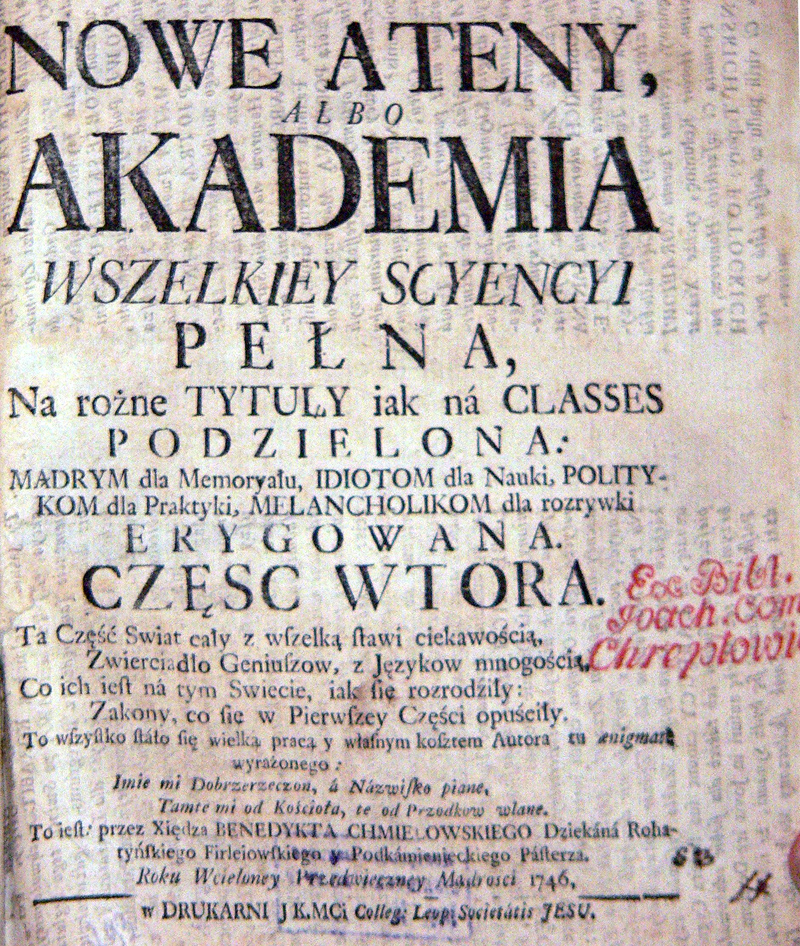 NOWE ATENY,
ALBO
AKADEMIA
WSZELKIEY SCYENCYI
PEŁNA,
Na rożne TYTUŁY iak ná CLASSES
PODZIELONA:
MADRYM dla Memoryału, IDIOTOM dla Nauki, POLITY-
KOM dla Praktyki, MELANCHOLIKOM dla rozrywki
ERYGOWANA.
CZĘSC WTORA.
Ex Bibl.
Joach. Com
Chreptowi
Ta Część Swiat cały z wſzelką ſtawi ciekawością,
Zwierciadło Geniuſzow, z Językow mnogością,
Co ich ieſt ná tym Swiecie, iak ſię rozrodziły:
Zakony, co ſię w Pierwſzey Części opuściły.
To wſzyſtko ſtáło ſię wielką pracą y właſnym koſztem Autora tu ænigmatè
wyrażonego:
Imie mi Dobrzerzeczon, á Názwiſko piane,
Tamte mi od Kościoła, te od Przodkow wlane.
To ieſt: przez Xiędza BENEDYKTA CHMIELOWSKIEGO Dziekáná Roha-
tyńſkiego Firleiowſkiego y Podkámienieckiego Páſterza.
Roku Wcieloney Przedwieczney Mądrosci 1746,
w DRUKARNI J K.MCi Colleg: Leop: Societátis JESU.